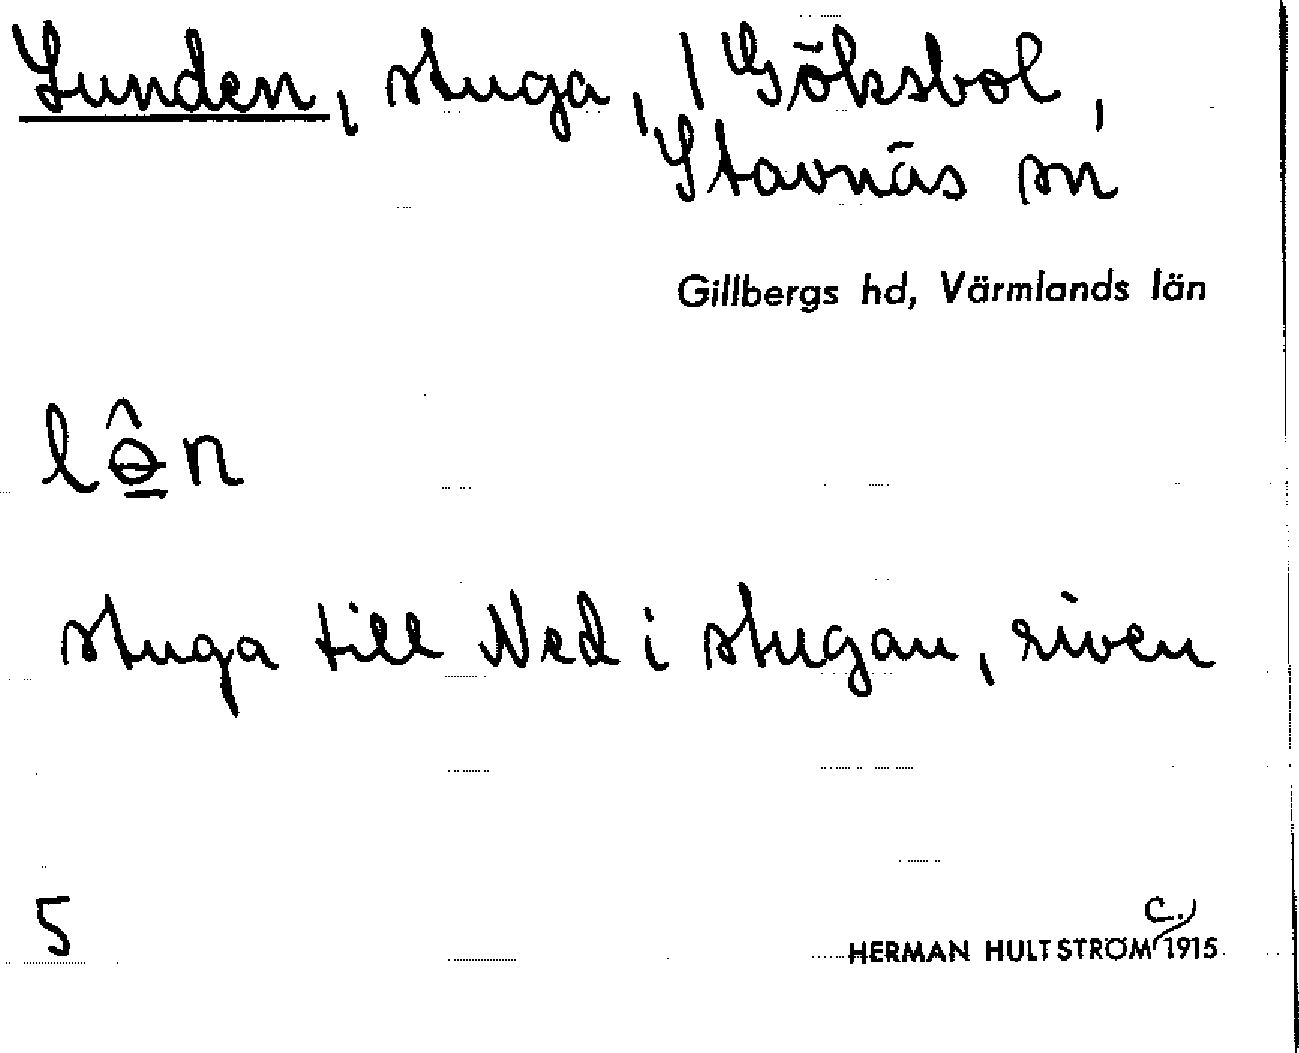 Lunden, stuga, / Göksbol,
Stavnäs sn
Gillbergs hd, Värmlands län
lɵ̲̂n
stuga till Ned i stugan, riven
5
c.)
HERMAN HULTSTRÖM 1915